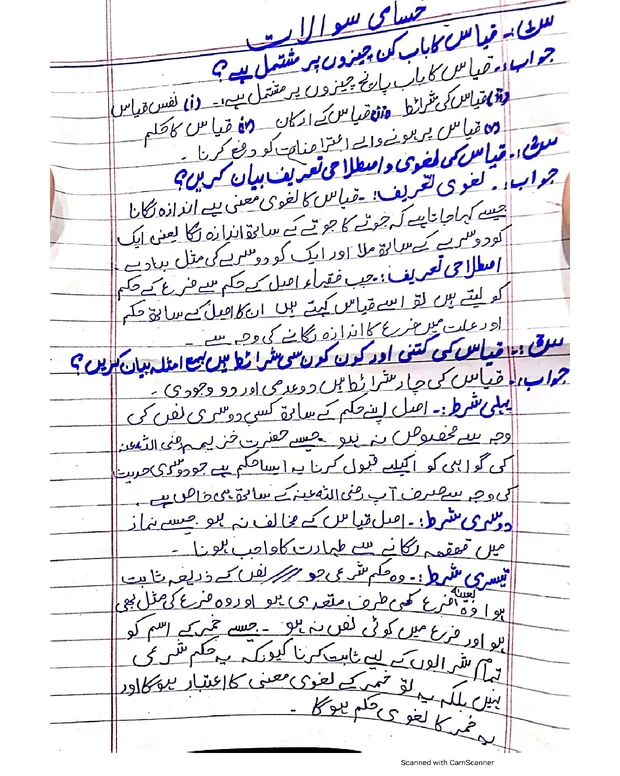 حسامی سوالات
س1:۔ قیاس کا باب کن چیزوں پر مشتمل ہے؟
جواب:۔ قیاس کا باب پانچ چیزوں پر مشتمل ہے:۔ (i) نفس قیاس
(ii) قیاس کی شرائط (iii) قیاس کے ارکان (iv) قیاس کا حکم
(v) قیاس پر ہونے والے اعتراضات کو دفع کرنا ۔
س2:۔ قیاس کی لغوی و اصطلاحی تعریف بیان کریں؟
جواب:۔ لغوی تعریف:۔ قیاس کا لغوی معنی ہے اندازہ لگانا
جیسے کہا جاتا ہے کہ جوتے کا جوتے کے ساتھ اندازہ لگا یعنی ایک
کو دوسرے کے ساتھ ملا اور ایک کو دوسرے کی مثل بنا دے ۔
اصطلاحی تعریف:۔ جب فقہاء اصل کے حکم سے فرع کے حکم
کو لیتے ہیں تو اسے قیاس کہتے ہیں ان کا اصل کے ساتھ حکم
اور علت میں فرع کا اندازہ لگانے کی وجہ سے ۔
س3:۔ قیاس کی کتنی اور کون کون سی شرائط ہیں بمع امثلہ بیان کریں؟
جواب:۔ قیاس کی چار شرائط ہیں دو عدمی اور دو وجودی ۔
پہلی شرط:۔ اصل اپنے حکم کے ساتھ کسی دوسری نص کی
وجہ سے مخصوص نہ ہو ۔ جیسے حضرت خزیمہ رضی اللہ عنہ
کی گواہی کو اکیلے قبول کرنا یہ ایسا حکم ہے جو دوسری حدیث
کی وجہ سے صرف آپ رضی اللہ عنہ کے ساتھ ہی خاص ہے ۔
دوسری شرط:۔ اصل قیاس کے مخالف نہ ہو جیسے نماز
میں قہقہہ لگانے سے طہارت کا واجب ہونا ۔
تیسری شرط:۔ وہ حکم شرعی جو نص کے ذریعہ ثابت
ہوا وہ بعینہ فرع کی طرف متعدی ہو اور وہ فرع کی مثل بھی
ہو اور فرع میں کوئی نص نہ ہو ۔ جیسے خمر کے اسم کو
تمام شرابوں کے لیے ثابت کرنا کیونکہ یہ حکم شرعی
نہیں بلکہ یہ تو خمر کے لغوی معنی کا اعتبار ہوگا اور
یہ خمر کا لغوی حکم ہوگا ۔
Scanned with CamScanner